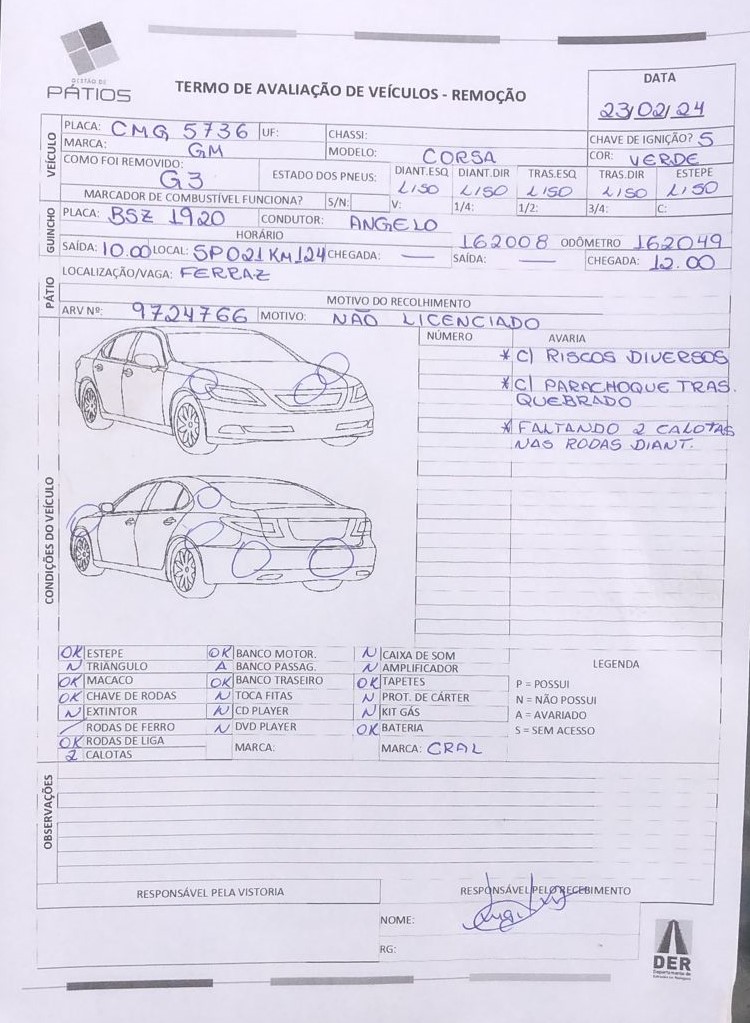 GESTÃO DE
PÁTIOS
TERMO DE AVALIAÇÃO DE VEÍCULOS - REMOÇÃO
DATA
23/02/24
VEÍCULO
PLACA: CMQ 5736 UF: CHASSI: CHAVE DE IGNIÇÃO? S
MARCA: GM MODELO: CORSA COR: VERDE
COMO FOI REMOVIDO: G3 ESTADO DOS PNEUS: DIANT.ESQ LISO DIANT.DIR LISO TRAS.ESQ LISO TRAS.DIR LISO ESTEPE LISO
MARCADOR DE COMBUSTÍVEL FUNCIONA? S/N: V: 1/4: 1/2: 3/4: C:
GUINCHO
PLACA: BSZ 1920 CONDUTOR: ANGELO
HORÁRIO 162008 ODÔMETRO 162049
SAÍDA: 10.00 LOCAL: SP021 KM124 CHEGADA: — SAÍDA: — CHEGADA: 12.00
PÁTIO
LOCALIZAÇÃO/VAGA: FERRAZ
MOTIVO DO RECOLHIMENTO
ARV Nº: 9724766 MOTIVO: NÃO LICENCIADO
CONDIÇÕES DO VEÍCULO
NÚMERO AVARIA
* C/ RISCOS DIVERSOS
* C/ PARACHOQUE TRAS.
QUEBRADO
* FALTANDO 2 CALOTAS
NAS RODAS DIANT.
OK ESTEPE OK BANCO MOTOR. N CAIXA DE SOM
N TRIÂNGULO A BANCO PASSAG. N AMPLIFICADOR
OK MACACO OK BANCO TRASEIRO OK TAPETES
OK CHAVE DE RODAS N TOCA FITAS N PROT. DE CÁRTER
N EXTINTOR N CD PLAYER N KIT GÁS
RODAS DE FERRO N DVD PLAYER OK BATERIA
OK RODAS DE LIGA MARCA: MARCA: CRAL
2 CALOTAS
LEGENDA
P = POSSUI
N = NÃO POSSUI
A = AVARIADO
S = SEM ACESSO
OBSERVAÇÕES
RESPONSÁVEL PELA VISTORIA RESPONSÁVEL PELO RECEBIMENTO
NOME:
RG:
DER